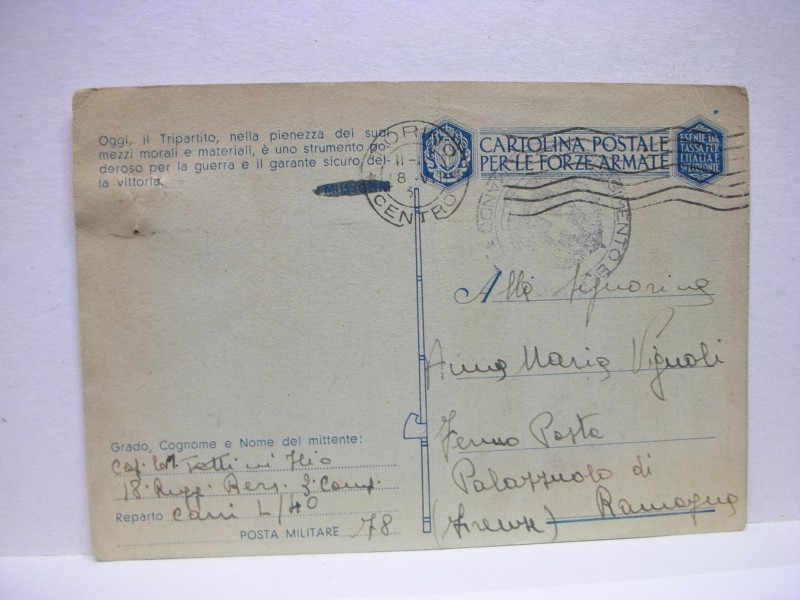 Oggi, il Tripartito, nella pienezza dei suoi
mezzi morali e materiali, è uno strumento po-
deroso per la guerra e il garante sicuro del-
la vittoria.
CENTRO
CARTOLINA POSTALE
PER LE FORZE ARMATE
ESENTE DA
TASSA PER
L'ITALIA E
Alla Signorina
Anna Maria Vignoli
Fermo Posta
Palazzuolo di
Romagna
(Firenze)
Grado, Cognome e Nome del mittente:
18. Regg. Bers. 3. Comp.
Reparto Carri L/40
POSTA MILITARE 78